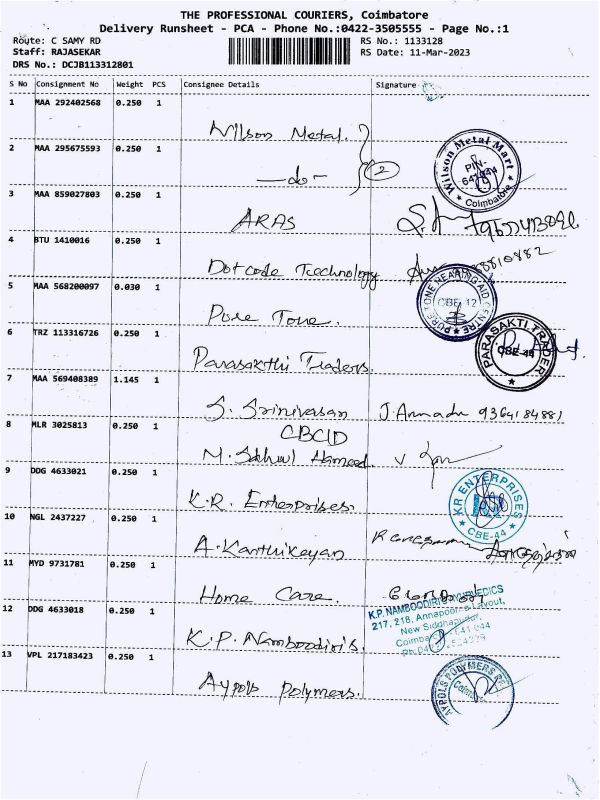 THE PROFESSIONAL COURIERS, Coimbatore
Delivery Runsheet - PCA - Phone No.:0422-3505555 - Page No.:1
Route: C SAMY RD RS No.: 1133128
Staff: RAJASEKAR RS Date: 11-Mar-2023
DRS No.: DCJB113312801
S No Consignment No Weight PCS Consignee Details Signature
1 MAA 292402568 0.250 1
Wilson Metal.
2 MAA 295675593 0.250 1
—do— 2
Wilson Metal Mart
PIN-
Coimbatore
3 MAA 859027803 0.250 1
ARAS
4 BTU 1410016 0.250 1
Dotcode Technology
5 MAA 568200097 0.030 1
Pure Tone.
PURE TONE HEARING AID CENTRE
CBE-12
6 TRZ 113316726 0.250 1
Parasakthi Traders.
PARASAKTI TRADER
CBE-44
7 MAA 569408389 1.145 1
S. Srinivasan 9364184881
CBCID
8 MLR 3025813 0.250 1
9 DDG 4633021 0.250 1
K.R. Enterprises.
KR ENTERPRISES
CBE-44
10 NGL 2437227 0.250 1
A. Karthikeyan
11 MYD 9731781 0.250 1
Home Care.
12 DDG 4633018 0.250 1
K.P. Namboodiri's.
K.P. NAMBOODIRI'S AYURVEDICS
217, 218, Annapoorna Layout,
New Siddhapudur,
13 VPL 217183423 0.250 1
Aypols Polymers.
AYPOLS POLYMERS
Coimbatore